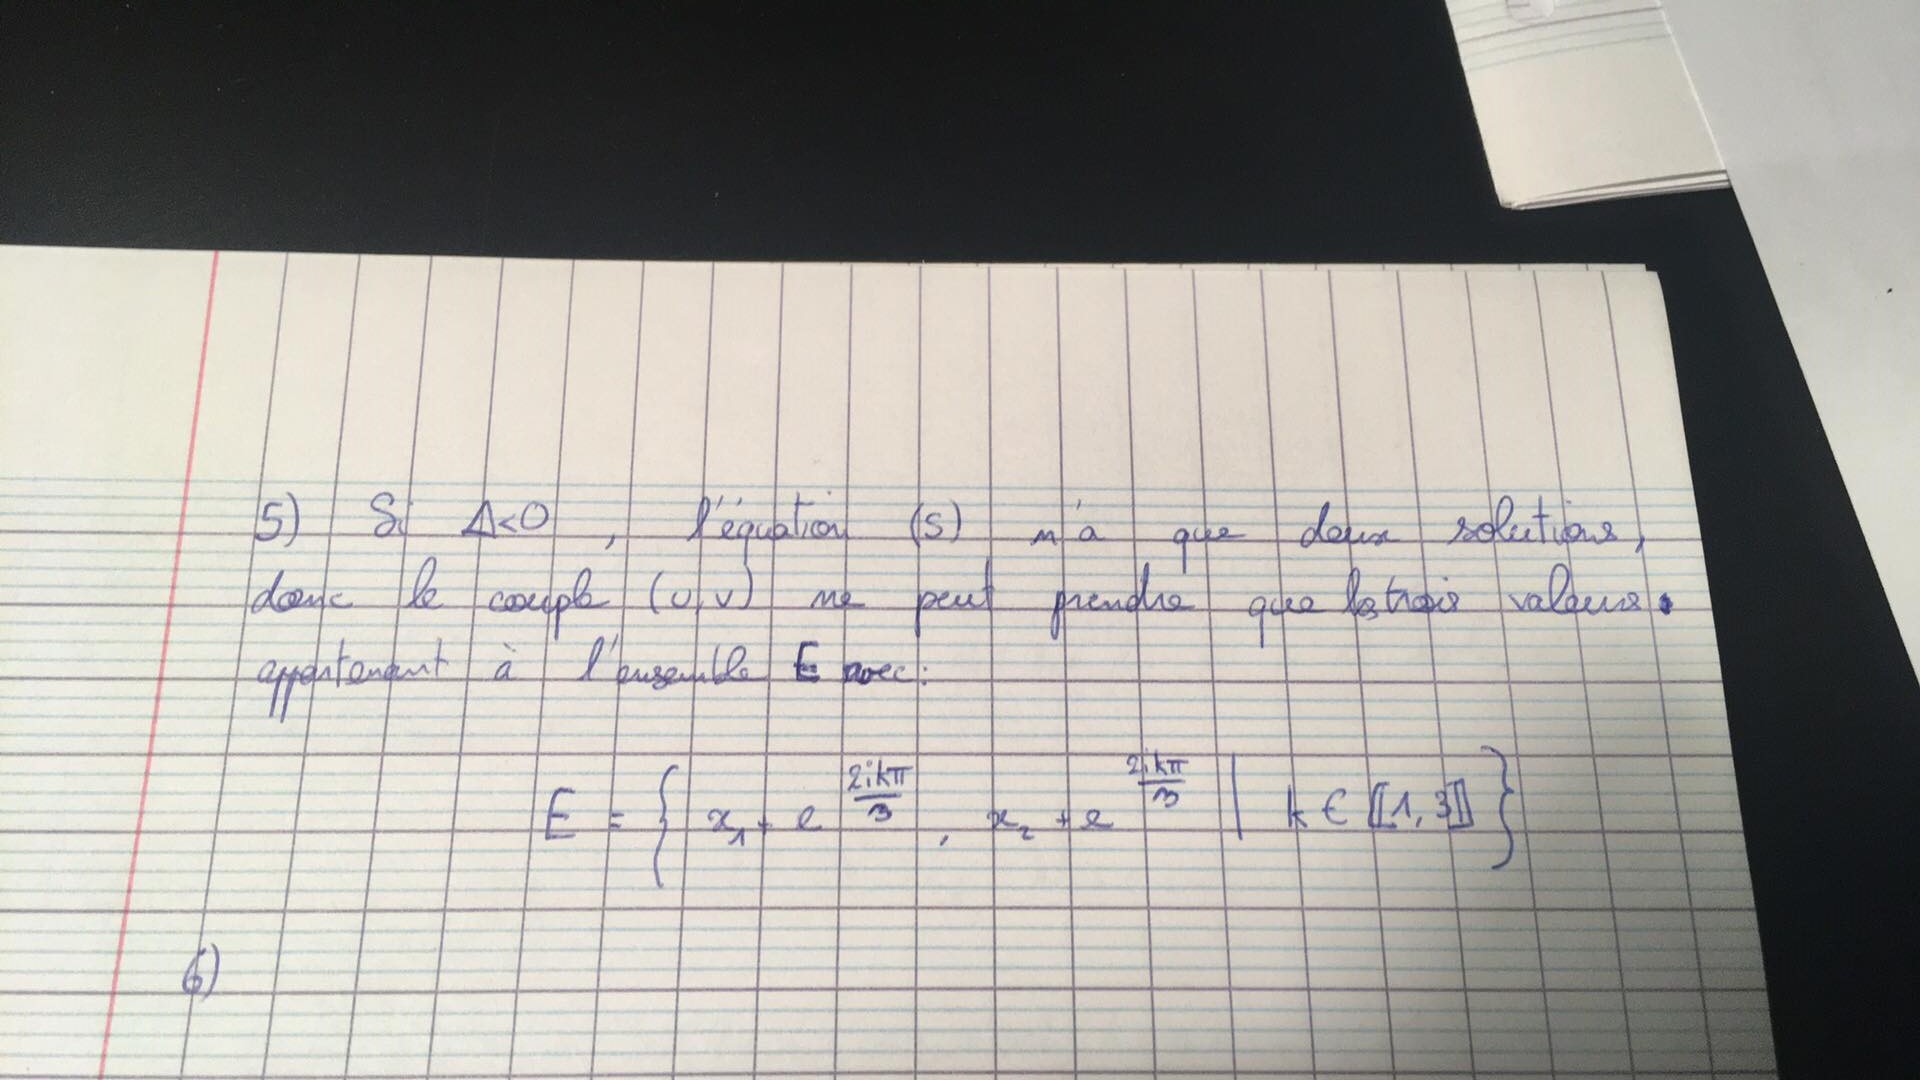 5) Si Δ<0, l'équation (S) n'a que deux solutions,
donc le couple (u,v) ne peut prendre que les trois valeurs
appartenant à l'ensemble E avec:
E = { x₁ + e^(2ikπ/3), x₂ + e^(2ikπ/3) | k ∈ ⟦1,3⟧ }
6)